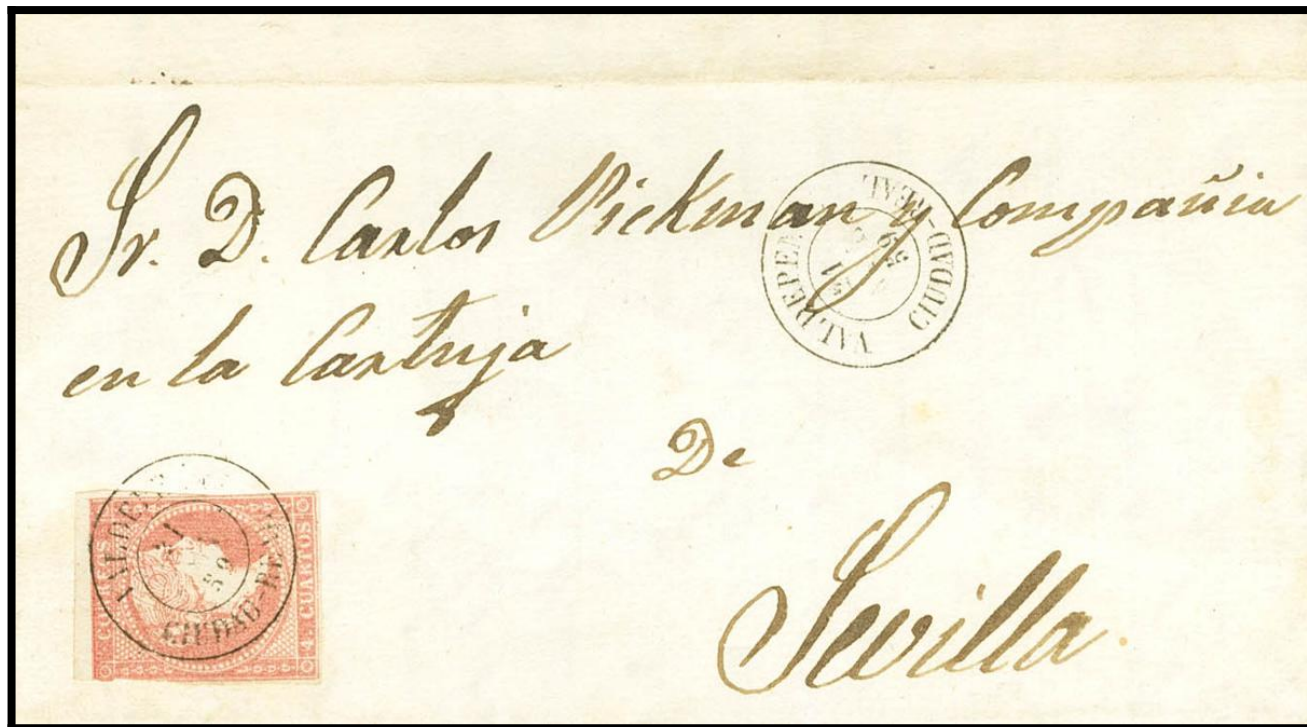 Sr. D. Carlos Pickman y Compañia
en la Cartuja
De
Sevilla
VALDEPEÑ
CIUDAD-REAL
59
CIUDAD-REAL
21
59
4 CUARTOS